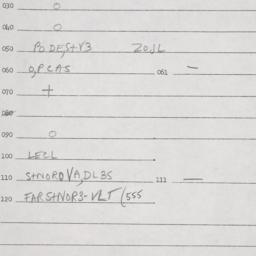 030 O
040 O
050 PODE,S+V3 ZOJL
060 O,PCAS 061 —
070 +
080
090 O
100 LECL
110 S+NORDVA,DL3S 111 —
120 FARS+NOR3-VLT(555